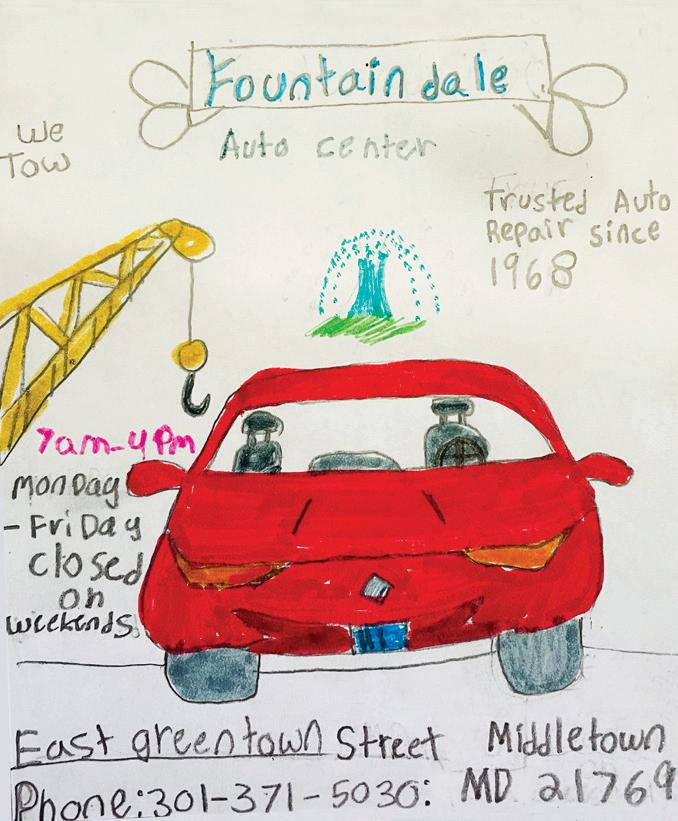 Fountaindale
Auto center
We
Tow
Trusted Auto
Repair since
1968
7am-4Pm
MonDay
- FriDay
closed
on
weekends.
East greentown Street Middletown
Phone:301-371-5030: MD 21769